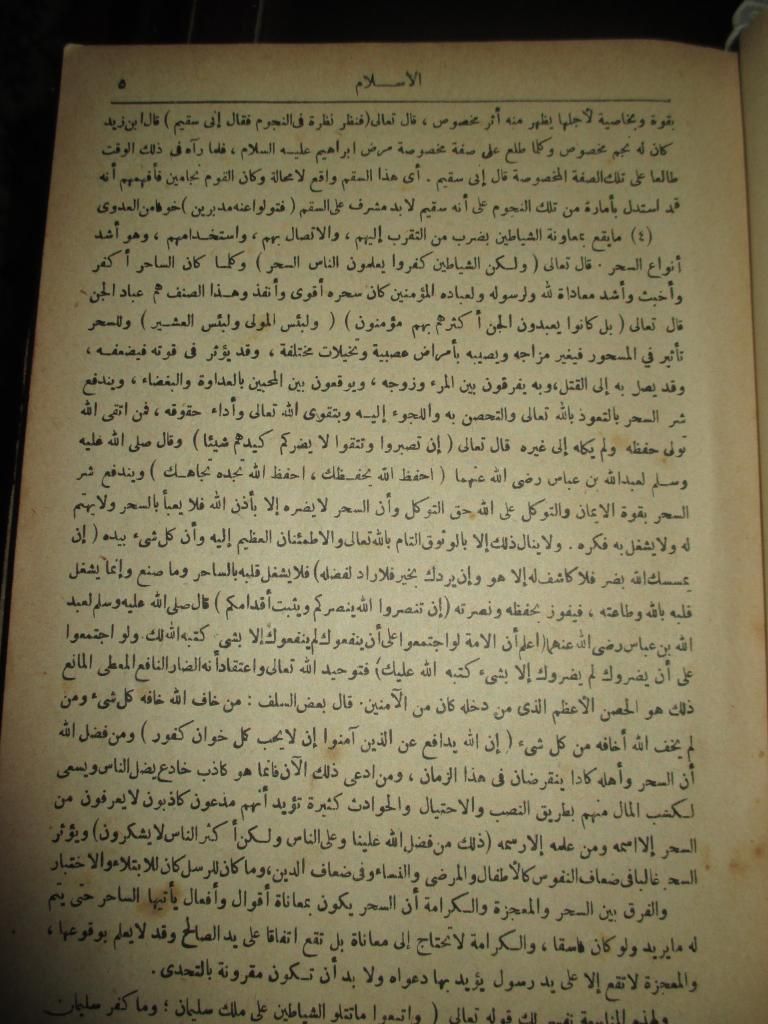 الاسلام ٥
بقوة وبخاصية لأجلها يظهر منه أثر مخصوص ، قال تعالى (فنظر نظرة فى النجوم فقال إنى سقيم ) قال ابن زيد
كان له نجم مخصوص وكلما طلع على صفة مخصوصة مرض ابراهيم عليه السلام ، فلما رآه فى ذلك الوقت
طالعا على تلك الصفة المخصوصة قال إنى سقيم . أى هذا السقم واقع لا محالة وكان القوم نجامين فأفهمهم أنه
قد استدل بأمارة من تلك النجوم على أنه سقيم لابد مشرف على السقم ( فتولوا عنه مدبرين ) خوفا من العدوى
(٤) مايقع بمعاونة الشياطين بضرب من التقرب إليهم ، والاتصال بهم ، واستخدامهم ، وهو أشد
أنواع السحر . قال تعالى ( ولكن الشياطين كفروا يعلمون الناس السحر ) وكلما كان الساحر أكفر
وأخبث وأشد معاداة لله ولرسوله ولعباده المؤمنين كان سحره أقوى وأنفذ وهذا الصنف هم عباد الجن
قال تعالى ( بل كانوا يعبدون الجن أكثرهم بهم مؤمنون ) ( ولبئس المولى ولبئس العشير ) وللسحر
تأثير في المسحور فيغير مزاجه ويصيبه بأمراض عصبية وتخيلات مختلفة ، وقد يؤثر فى قوته فيضعفه ،
وقد يصل به إلى القتل، وبه يفرقون بين المرء وزوجه ، ويوقعون بين المحبين بالعداوة والبغضاء ، ويندفع
شر السحر بالتعوذ بالله تعالى والتحصن به واللجوء إليه وبتقوى الله تعالى وأداء حقوقه ، فمن اتقى الله
تولى حفظه ولم يكله إلى غيره قال تعالى ( إن تصبروا وتتقوا لا يضركم كيدهم شيئا ) وقال صلى الله عليه
وسلم لعبدالله بن عباس رضى الله عنهما ( احفظ الله يحفظك ، احفظ الله تجده تجاهك ) ويندفع شر
السحر بقوة الايمان والتوكل على الله حق التوكل وأن السحر لايضره إلا بأذن الله فلا يعبأ بالسحر ولايهتم
له ولايشغل به فكره . ولاينال ذلك إلا بالوثوق التام بالله تعالى والاطمئنان العظيم إليه وأن كل شىء بيده ( إن
يمسسك الله بضر فلا كاشف له إلا هو وإن يردك بخير فلا راد لفضله) فلا يشغل قلبه بالساحر وما صنع وإنما يشغل
قلبه بالله وطاعته ، فيفوز بحفظه ونصرته (إن تنصروا الله ينصركم ويثبت أقدامكم ) قال صلى الله عليه وسلم لعبد
الله بن عباس رضى الله عنهما (اعلم أن الامة لواجتمعوا على أن ينفعوك لم ينفعوك إلا بشى كتبه الله لك ولو اجتمعوا
على أن يضروك لم يضروك إلا بشىء كتبه الله عليك) فتوحيد الله تعالى واعتقاد أنه الضار النافع المعطى المانع
ذلك هو الحصن الأعظم الذى من دخله كان من الآمنين . قال بعض السلف : من خاف الله خافه كل شىء ومن
لم يخف الله أخافه من كل شىء ( إن الله يدافع عن الذين آمنوا إن لايحب كل خوان كفور ) ومن فضل الله
أن السحر وأهله كادا ينقرضان فى هذا الزمان ، ومن ادعى ذلك الآن فانما هو كاذب خادع يضل الناس ويسعى
لكسب المال منهم بطريق النصب والاحتيال والحوادث كثيرة تؤيد أنهم مدعون كاذبون لايعرفون من
السحر إلا اسمه ومن علمه إلا رسمه (ذلك من فضل الله علينا وعلى الناس ولكن أكثر الناس لايشكرون) ويؤثر
السحر غالبا فى ضعاف النفوس كالأطفال والمرضى والنساء وفى ضعاف الدين، وما كان للرسل كان للابتلاء والاختبار
والفرق بين السحر والمعجزة والكرامة أن السحر يكون بمعاناة أقوال وأفعال يأتيها الساحر حتى يتم
له مايريد ولو كان فاسقا ، والكرامة لاتحتاج إلى معاناة بل تقع اتفاقا على يد الصالح وقد لايعلم بوقوعها ،
والمعجزة لاتقع إلا على يد رسول يؤيد بها دعواه ولا بد أن تكون مقرونة بالتحدى .
ولهذه المناسبة نفسر لك قوله تعالى ( واتبعوا ماتتلو الشياطين على ملك سليمان ؛ وما كفر سليمان